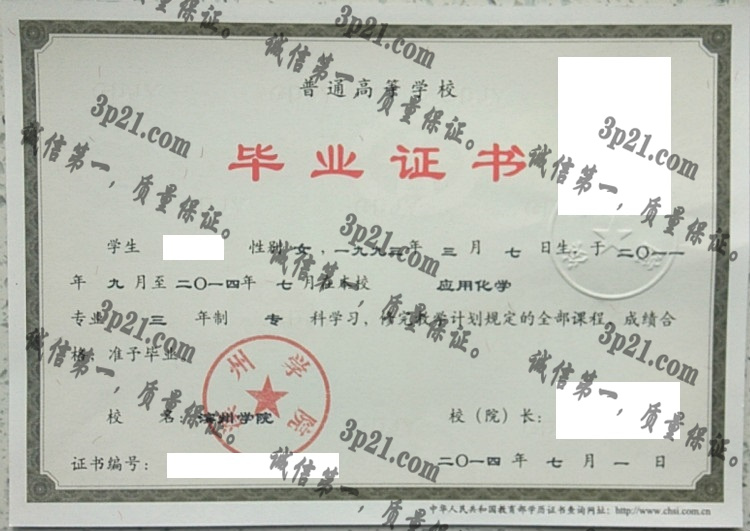 普通高等学校
毕业证书
学生 性别 女，一九九三年 三 月 七 日生，于 二〇一一
年 九 月至 二〇一四年 七 月在本校 应用化学
专业 三 年制 专 科学习，修完教学计划规定的全部课程，成绩合
格，准予毕业。
校 名：滨州学院 校（院）长：
证书编号： 二〇一四 年 七 月 一 日
中华人民共和国教育部学历证书查询网址：http://www.chsi.com.cn
滨州学院
3p21.com
诚信第一，质量保证。
3p21.com
诚信第一，质量保证。
3p21.com
诚信第一，质量保证。
3p21.com
诚信第一，质量保证。
3p21.com
诚信第一，质量保证。
3p21.com
诚信第一，质量保证。
3p21.com
诚信第一，质量保证。